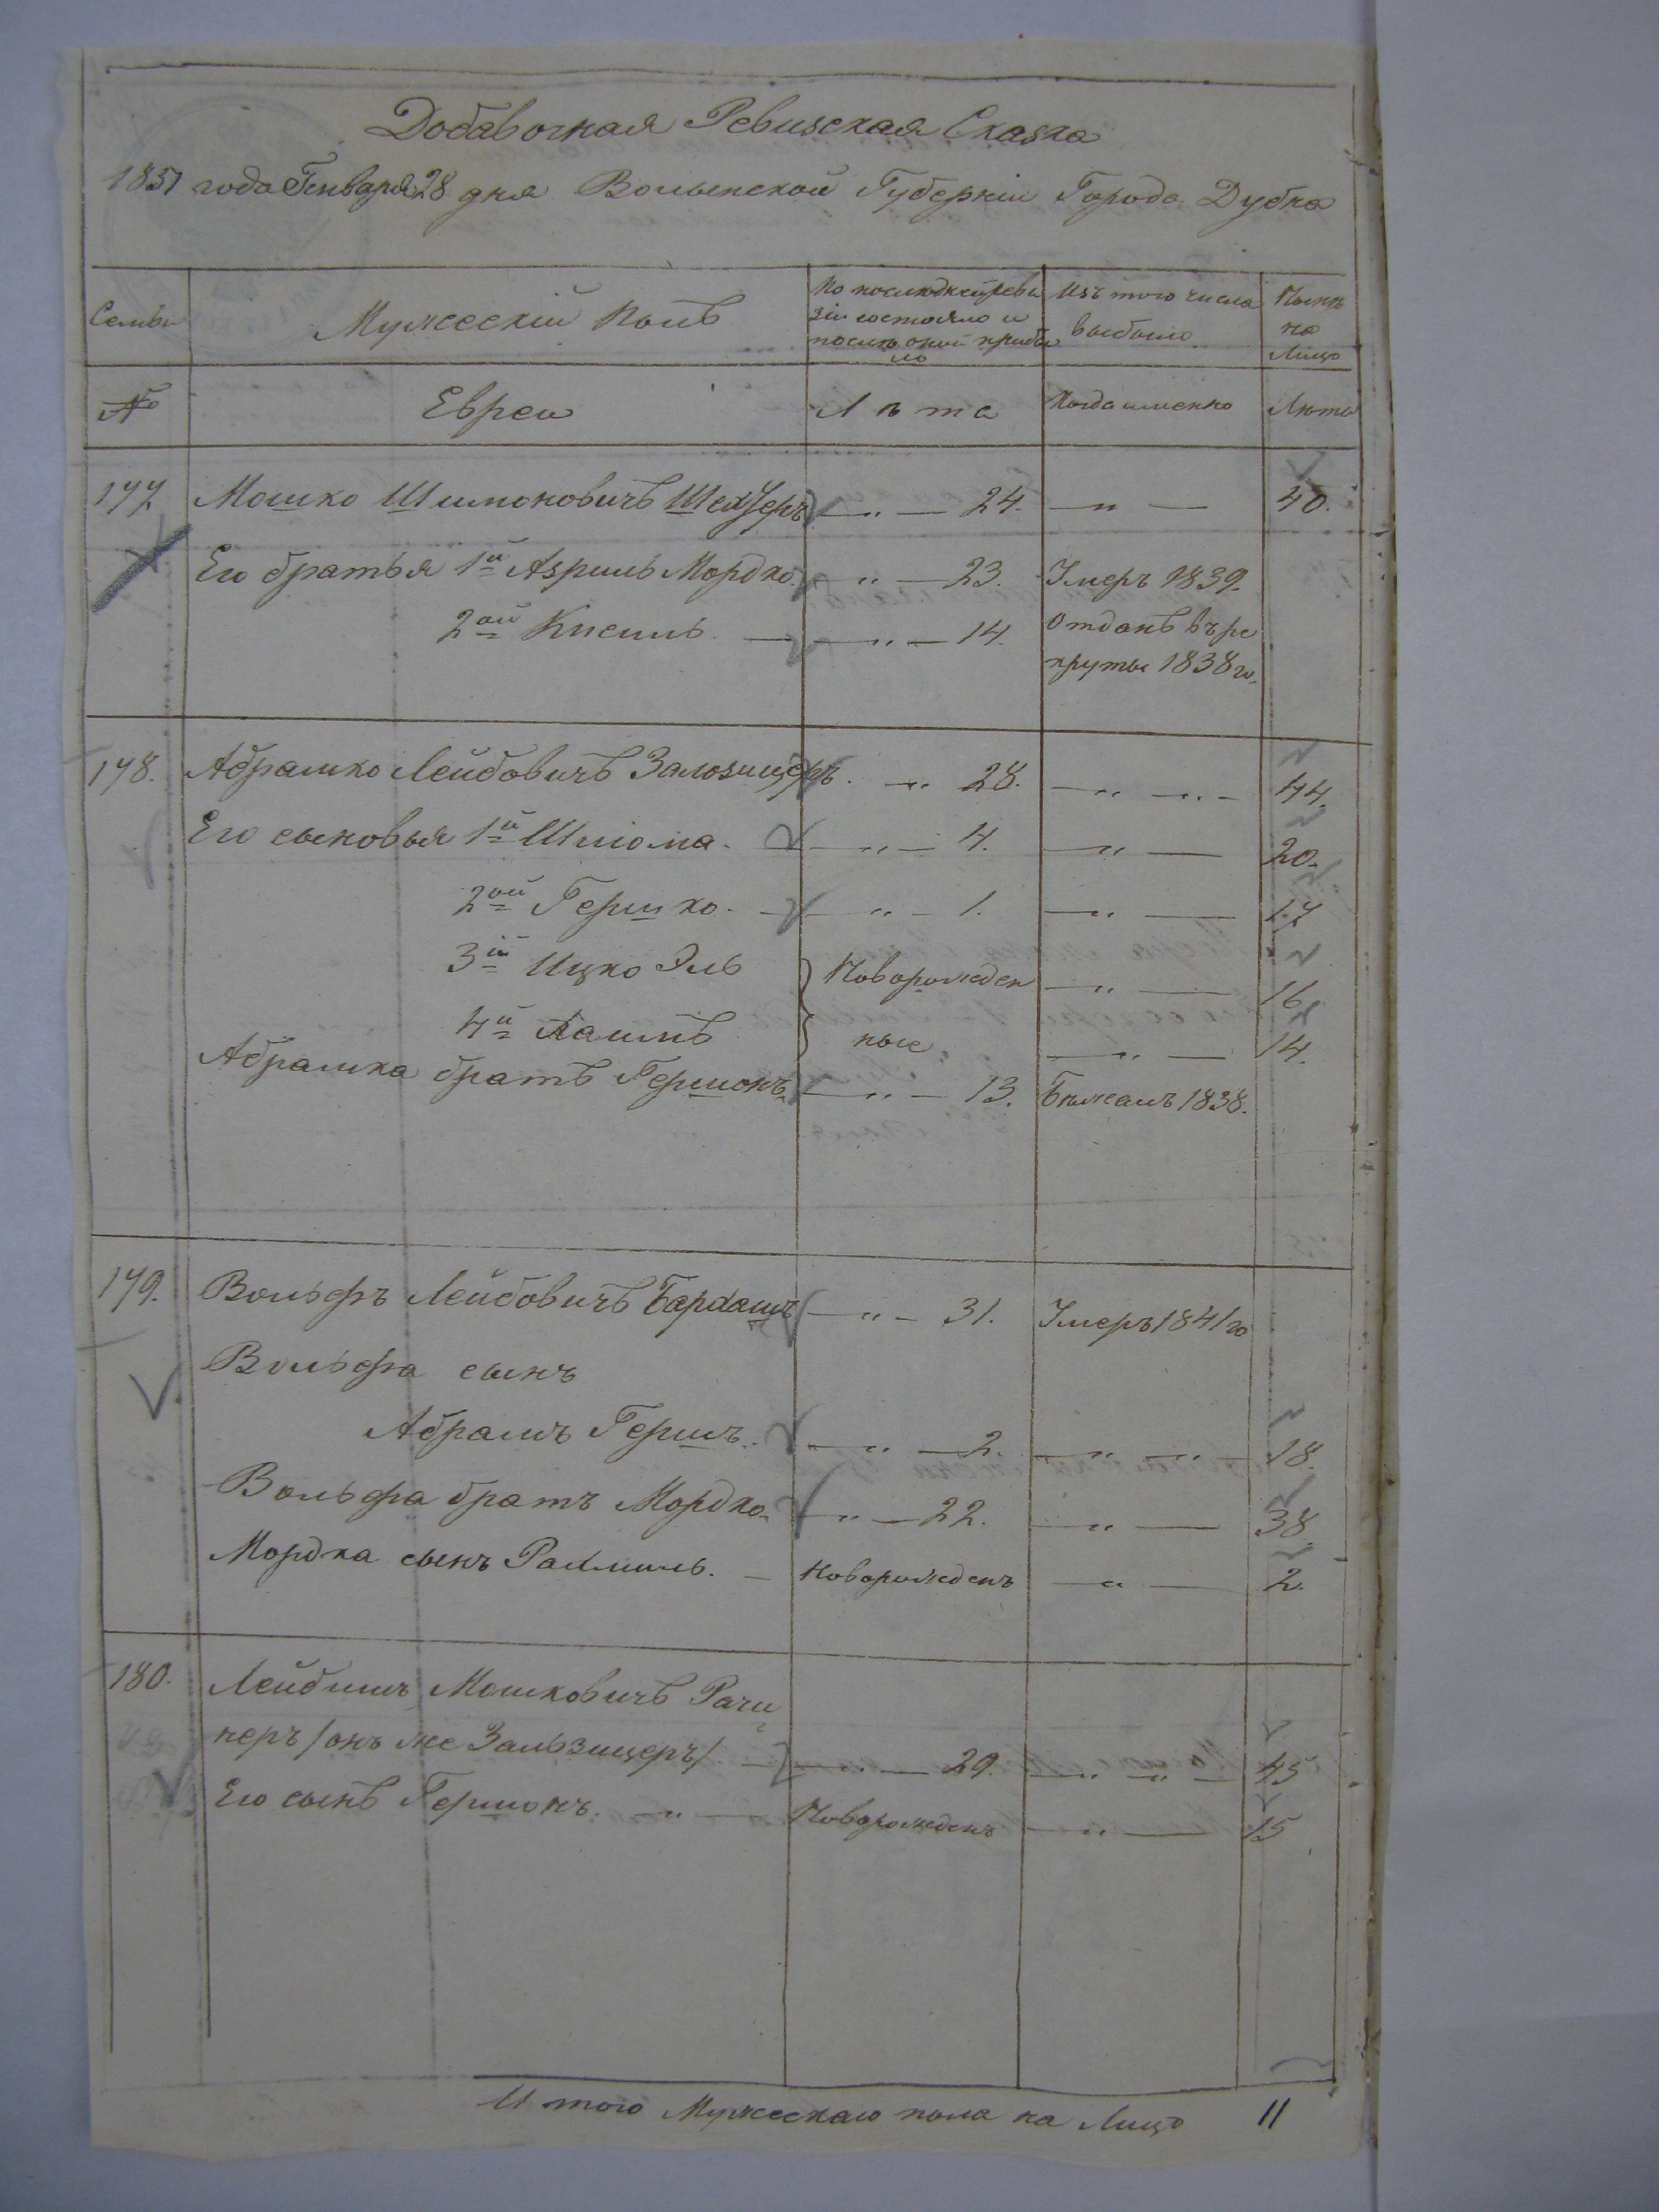 Добавочная Ревизская Сказка
1837 года Генваря 28 дня Волынской Губерніи Города Дубна
Семьи
Мужескій полъ
По последней реви
зіи состояло и
после оной прибы
ло
Изъ того числа
выбыло
Ныне
на
Лицо
№
Евреи
Лета
Когда именно
Лета
177. Мошко Шлимоновичъ — " — 24. — " — 40.
Его братья 1й Азриль Мордко. — " — 23. Умеръ 1839.
2ой Кисиль. — — " — 14. Отданъ въ ре
круты 1838 го.
178. Абрамко Лейбовичъ Залозицеръ. — " 28. — " — " — 44.
Его сыновья 1й Шліома. — " — 4. — " — 20.
2ой Гершко. — " — 1. — " — 17
3й Ицко Эль Новорожден — " — 16
4й Хаимъ ные — " — 14.
Абрамка братъ Гершонъ. — " — 13. Бежалъ 1838.
179. Вольфъ Лейбовичъ Бардашъ — " — 31. Умеръ 1841 го
Вольфа сынъ
Абрамъ Гершъ. — " — 2. — " — " — 18.
Вольфа братъ Мордко. — " — 22. — " — 38.
Мордка сынъ Рахмиль. — Новорожденъ — " — 2.
180. Лейбишъ Мошковичъ Рачи
неръ /онъ же Зальзицеръ/. — " — 29. — " — " — 45
Его сынъ Гершонъ. — " — Новорожденъ — " — 15
Итого Мужескаго пола на Лицо 11